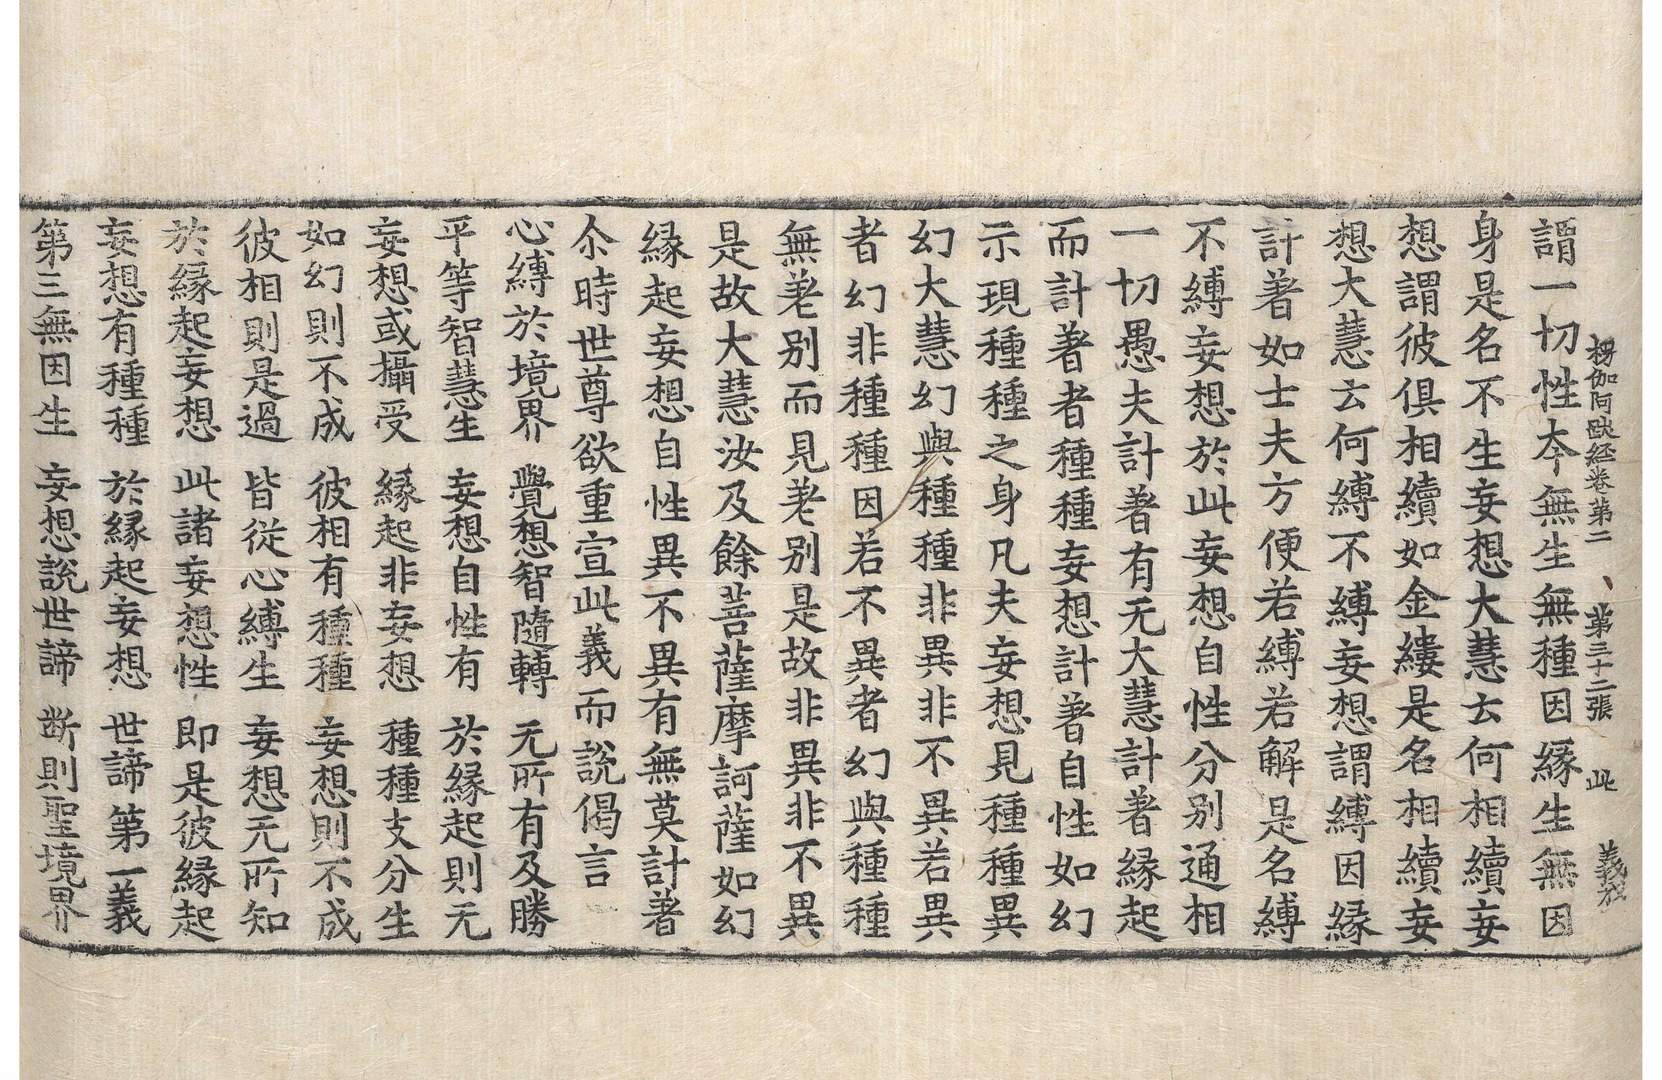 楞伽阿跋経卷第二 第三十二張 此
謂一切性本無生無種因緣生無因
身是名不生妄想大慧云何相續妄
想謂彼俱相續如金縷是名相續妄
想大慧云何縛不縛妄想謂縛因緣
計著如士夫方便若縛若解是名縛
不縛妄想於此妄想自性分別通相
一切愚夫計著有无大慧計著緣起
而計著者種種妄想計著自性如幻
示現種種之身凡夫妄想見種種異
幻大慧幻與種種非異非不異若異
者幻非種種因若不異者幻與種種
無差別而見差別是故非異非不異
是故大慧汝及餘菩薩摩訶薩如幻
緣起妄想自性異不異有無莫計著
尒時世尊欲重宣此義而說偈言
心縛於境界 覺想智隨轉 无所有及勝
平等智慧生 妄想自性有 於緣起則无
妄想或攝受 緣起非妄想 種種支分生
如幻則不成 彼相有種種 妄想則不成
彼相則是過 皆從心縛生 妄想无所知
於緣起妄想 此諸妄想性 即是彼緣起
妄想有種種 於緣起妄想 世諦第一義
第三無因生 妄想說世諦 断則聖境界